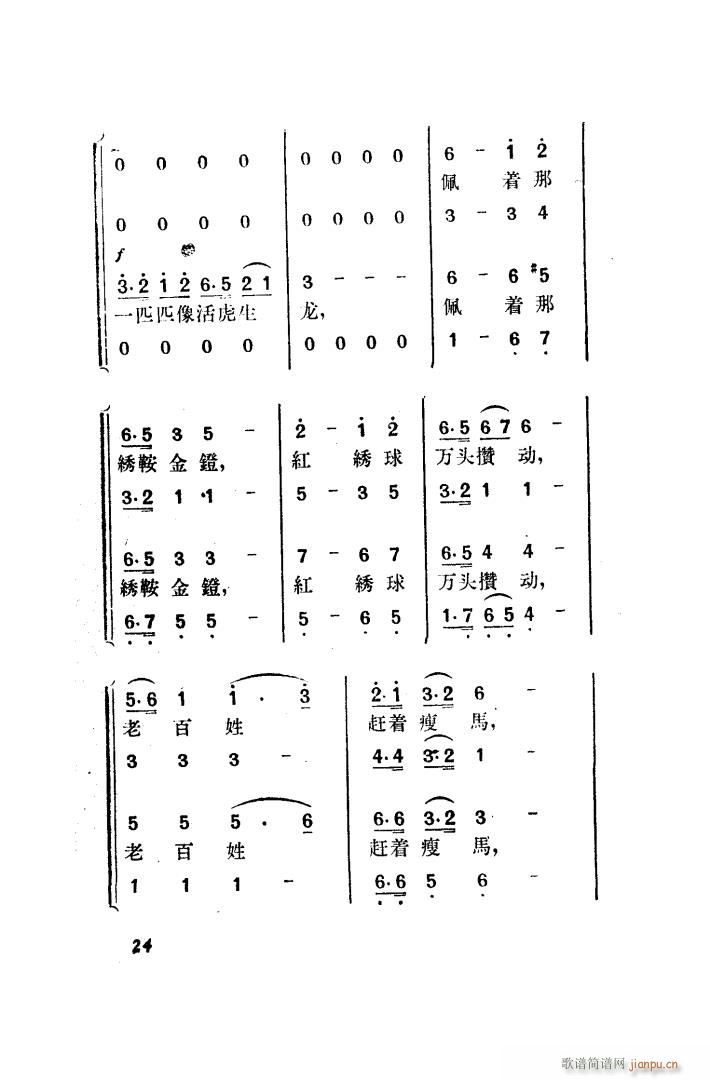 0 0 0 0 0 0 0 0 6 - 1 2
佩 着 那
0 0 0 0 0 0 0 0 3 - 3 4
f
3·2 1 2 6·5 2 1 3 - - - 6 - 6 #5
一匹匹像活虎生 龙, 佩 着 那
0 0 0 0 0 0 0 0 1 - 6 7
6·5 3 5 - 2 - 1 2 6·5 6 7 6 -
綉鞍金鐙, 紅 綉球 万头攢 动,
3·2 1 ·1 - 5 - 3 5 3·2 1 1 -
6·5 3 3 - 7 - 6 7 6·5 4 4 -
綉鞍金鐙, 紅 綉球 万头攢 动,
6·7 5 5 - 5 - 6 5 1·7 6 5 4 -
5·6 1 1 · 3 2·1 3·2 6 -
老 百 姓 赶着瘦 馬,
3 3 3 - 4·4 3·2 1 -
5 5 5 · 6 6·6 3·2 3 -
老 百 姓 赶着瘦 馬,
1 1 1 - 6·6 5 6 -
24
歌谱简谱网 jianpu.cn